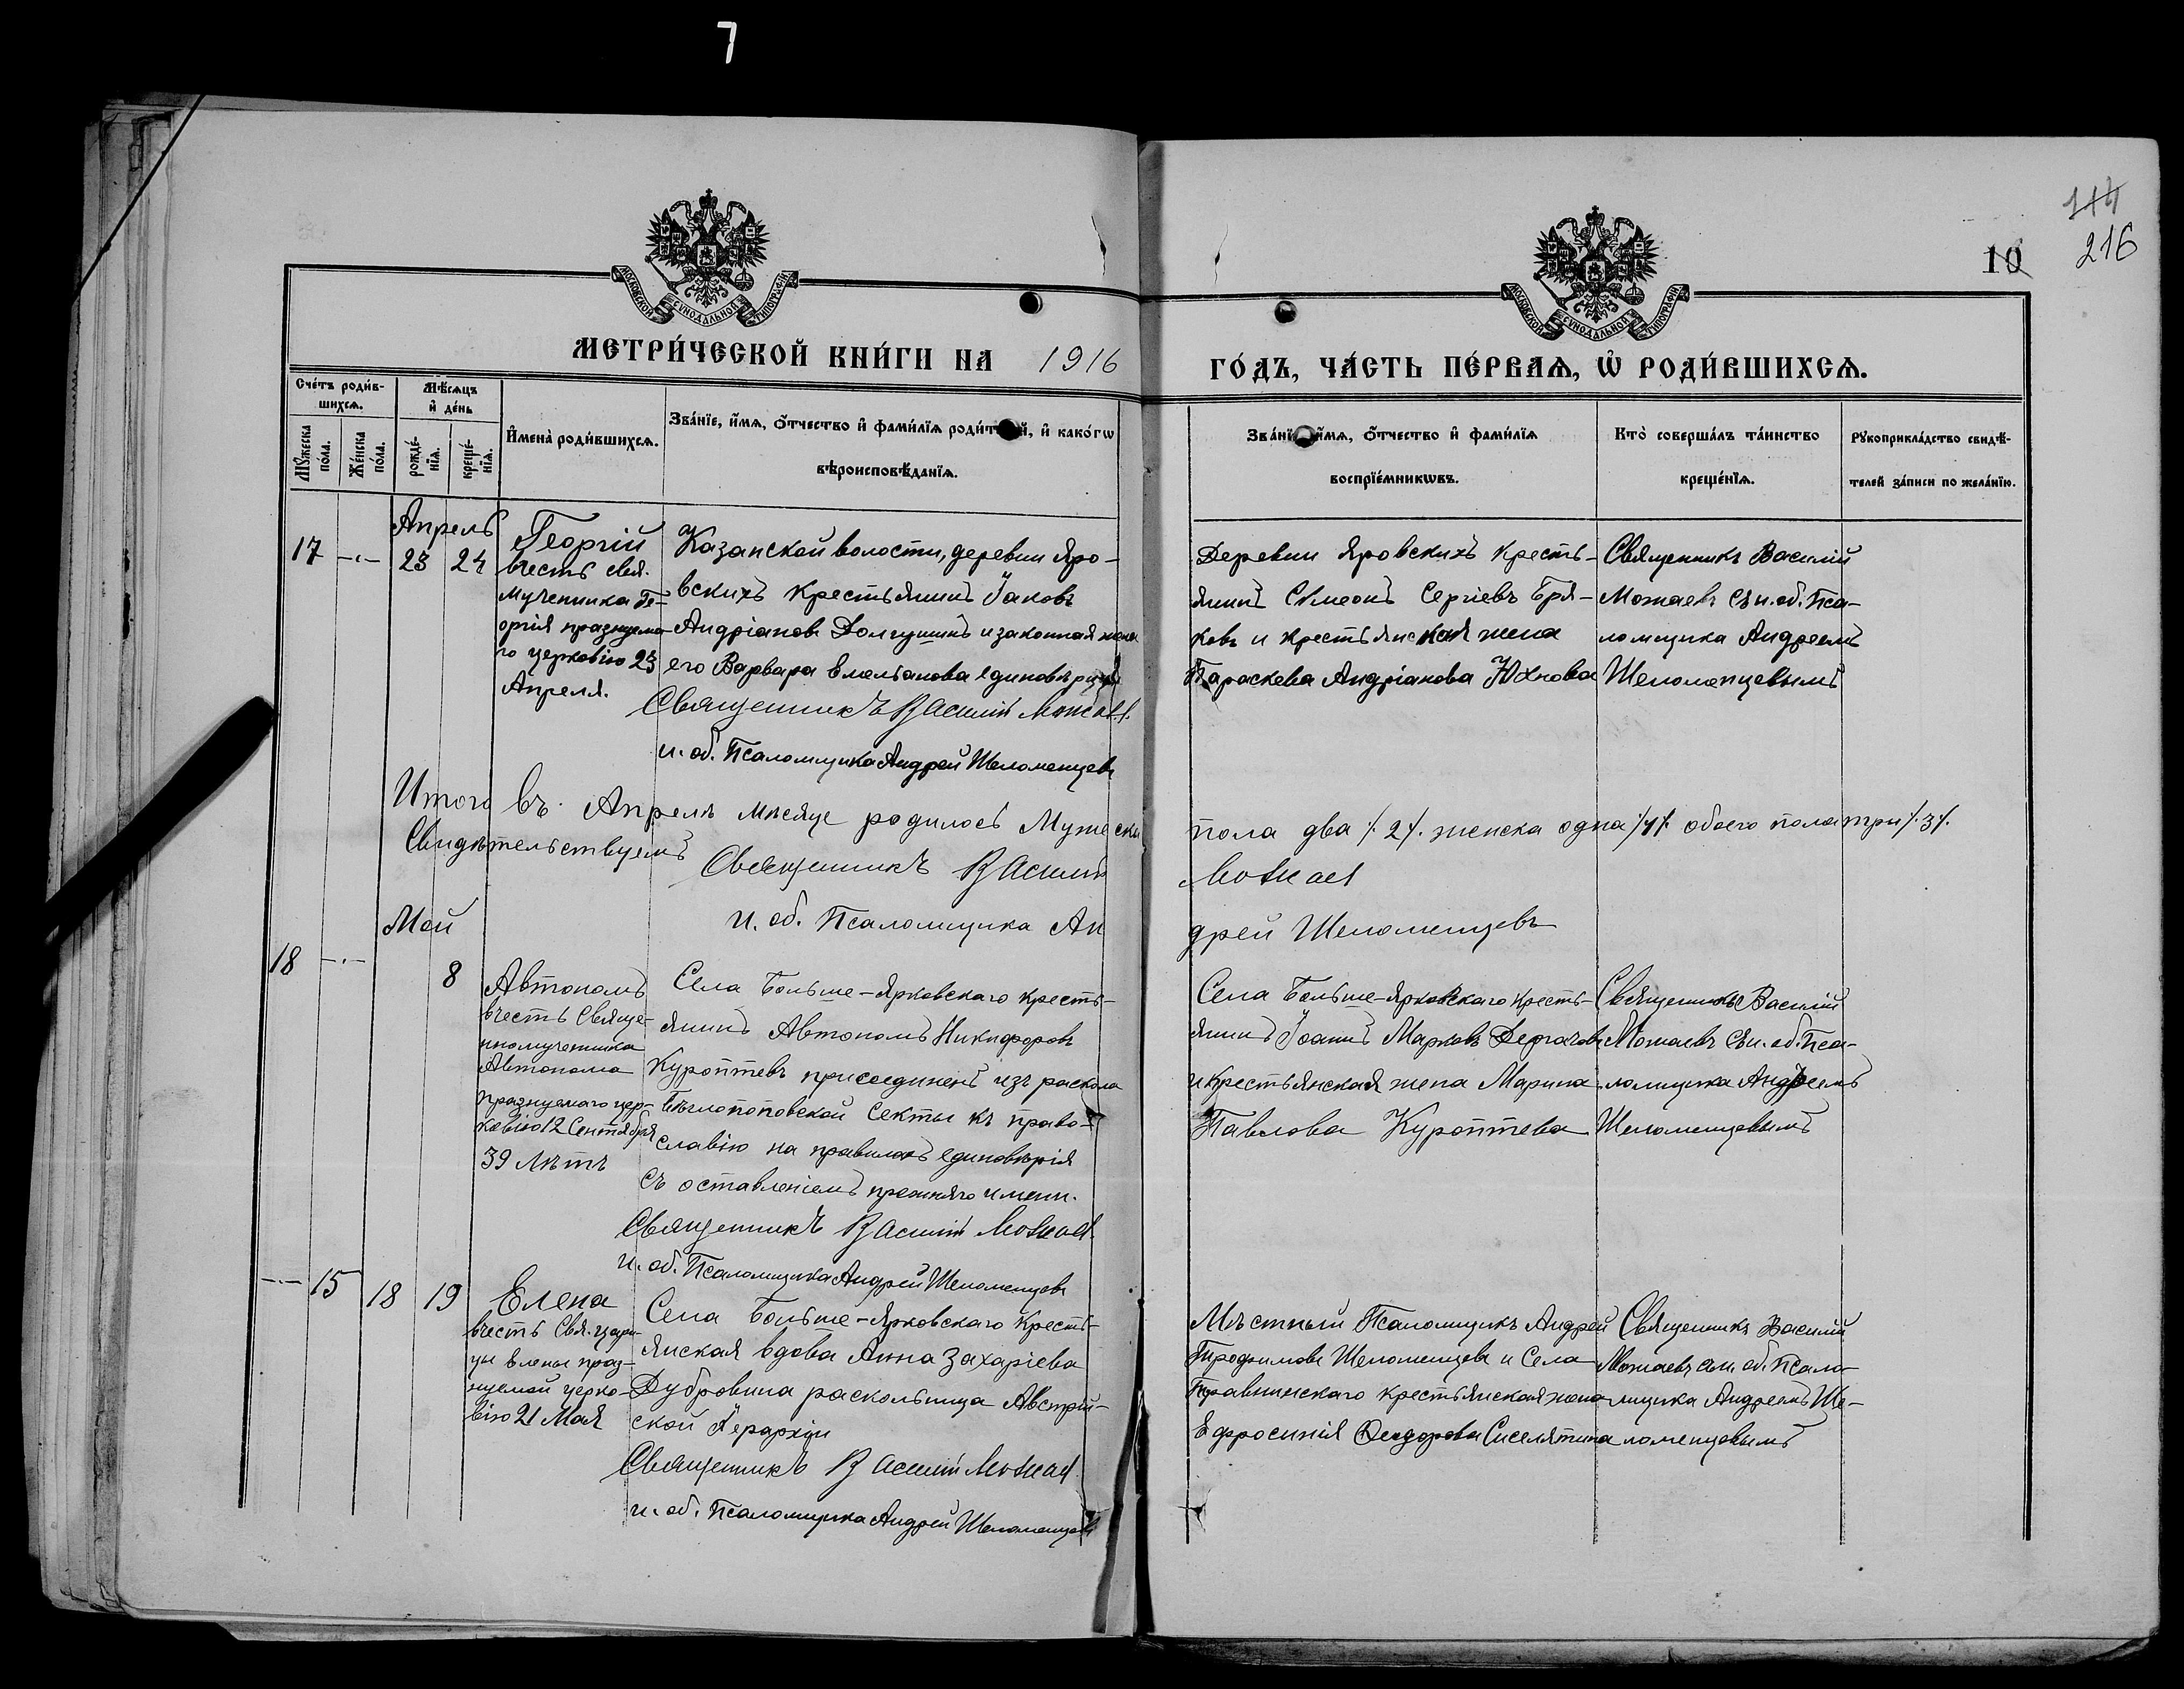 7
114
216
10
МОСКОВСКОЙ СѴНОДАЛЬНОЙ ТИПОГРАФІИ
МОСКОВСКОЙ СѴНОДАЛЬНОЙ ТИПОГРАФІИ
МЕТРИ́ЧЕСКОЙ КНИ́ГИ НА 1916
ГО́ДЪ, ЧА́СТЬ ПЕ́РВАѦ, Ѡ РОДИ́ВШИХСѦ.
Сче́тъ роди́в-
шихсѧ.
Мѣ́сѧцъ
и҆ де́нь
Мꙋ́жеска
по́ла.
Же́нска
по́ла.
рожде́-
нїѧ.
креще́-
нїѧ.
И҆мена̀ роди́вшихсѧ.
Зва́нїе, и҆́мѧ, ѻ҆́тчество и҆ фами́лїѧ роди́телей, и҆ како́гѡ
вѣроисповѣ́данїѧ.
Зва́нїе, и҆́мѧ, ѻ҆́тчество и҆ фами́лїѧ
воспрїе́мникѡвъ.
Кто̀ соверша́лъ та́инство
креще́нїѧ.
Рꙋкоприкла́дство свидѣ́-
телей за́писи по жела́нїю.
Апрель
17 -"- 23 24
Георгій
въ честь свя.
мученика Ге-
оргія празнуема-
го церковію 23
Апреля.
Казанской волости, деревни Яро-
вскихъ Крестьянинъ Іаковъ
Андріановъ Долгушинъ и законная жена
его Варвара Емельянова единоверцы
Священникъ Василій Можаев.
и. об. Псаломщика Андрей Шеломенцевъ
Деревни Яровскихъ Кресть-
янинъ Симеонъ Сергіевъ Бря-
ковъ и крестьянская жена
Параскева Андріанова Юхнова
Священникъ Василій
Можаевъ съ и. об. Пса-
ломщика Андреемъ
Шеломенцевымъ
Итого въ Апреле месяце родилось Мужеска пола два /.2/. женска одна /.1/. обоего пола три /.3/.
Свидетельствуемъ
Священникъ Василій Можаев
и. об. Псаломщика Андрей Шеломенцевъ
Май
18 -"- 8
Автономъ
въ честь Свяще-
нномученика
Автонома
празнуемаго цер-
ковію 12 Сентября
39 лѣтъ
Села Больше-Ярковскаго кресть-
янинъ Автономъ Никифоровъ
Куроптевъ присоединенъ изъ раскола
Беглопоповской секты къ право-
славію на правилахъ единоверія
съ оставленіемъ прежняго имени.
Священникъ Василій Можаев
и. об. Псаломщика Андрей Шеломенцевъ
Села Больше-Ярковскаго Кресть-
янинъ Іоаннъ Марковъ Дергачовъ
и крестьянская жена Марина
Павлова Куроптева
Священникъ Василій
Можаевъ съ и. об. Пса-
ломщика Андреемъ
Шеломенцевымъ
-"- 15 18 19
Елена
въ честь Свя. цари-
цы Елены праз-
нуемой церко-
вію 21 Мая
Села Больше-Ярковскаго Кресть-
янская вдова Анна Захаріева
Дубровина раскольница Австрій-
ской Іерархіи
Священникъ Василій Можаев
и. об. Псаломщика Андрей Шеломенцевъ
Местный Псаломщикъ Андрей
Трофимовъ Шеломенцевъ и Села
крестьянская жена
Ефросинія Феодорова
Священникъ Василій
Можаевъ съ и. об. Псало-
мщика Андреемъ Ше-
ломенцевымъ